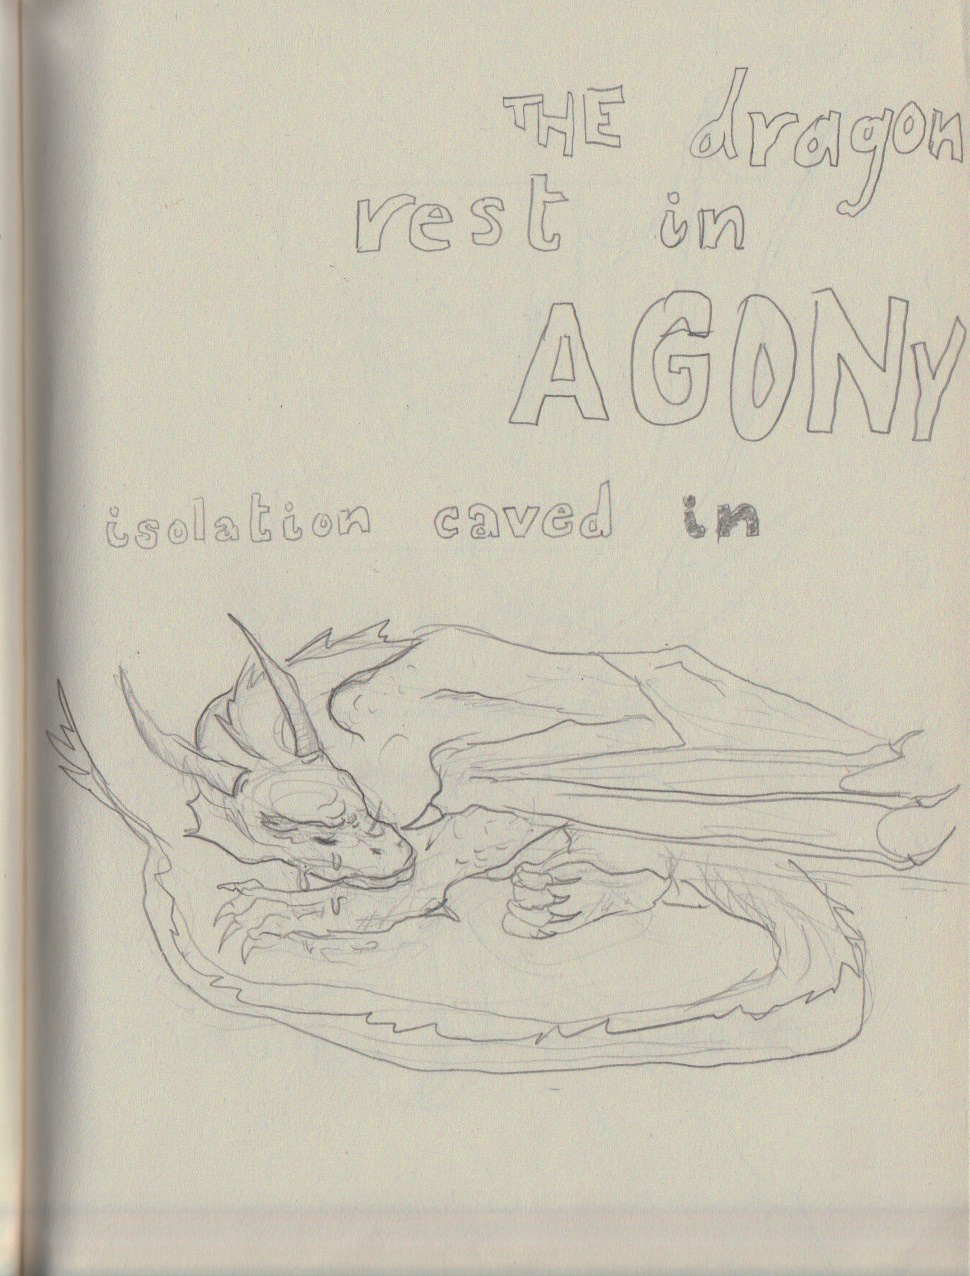 THE dragon
rest in
AGONY
isolation caved in